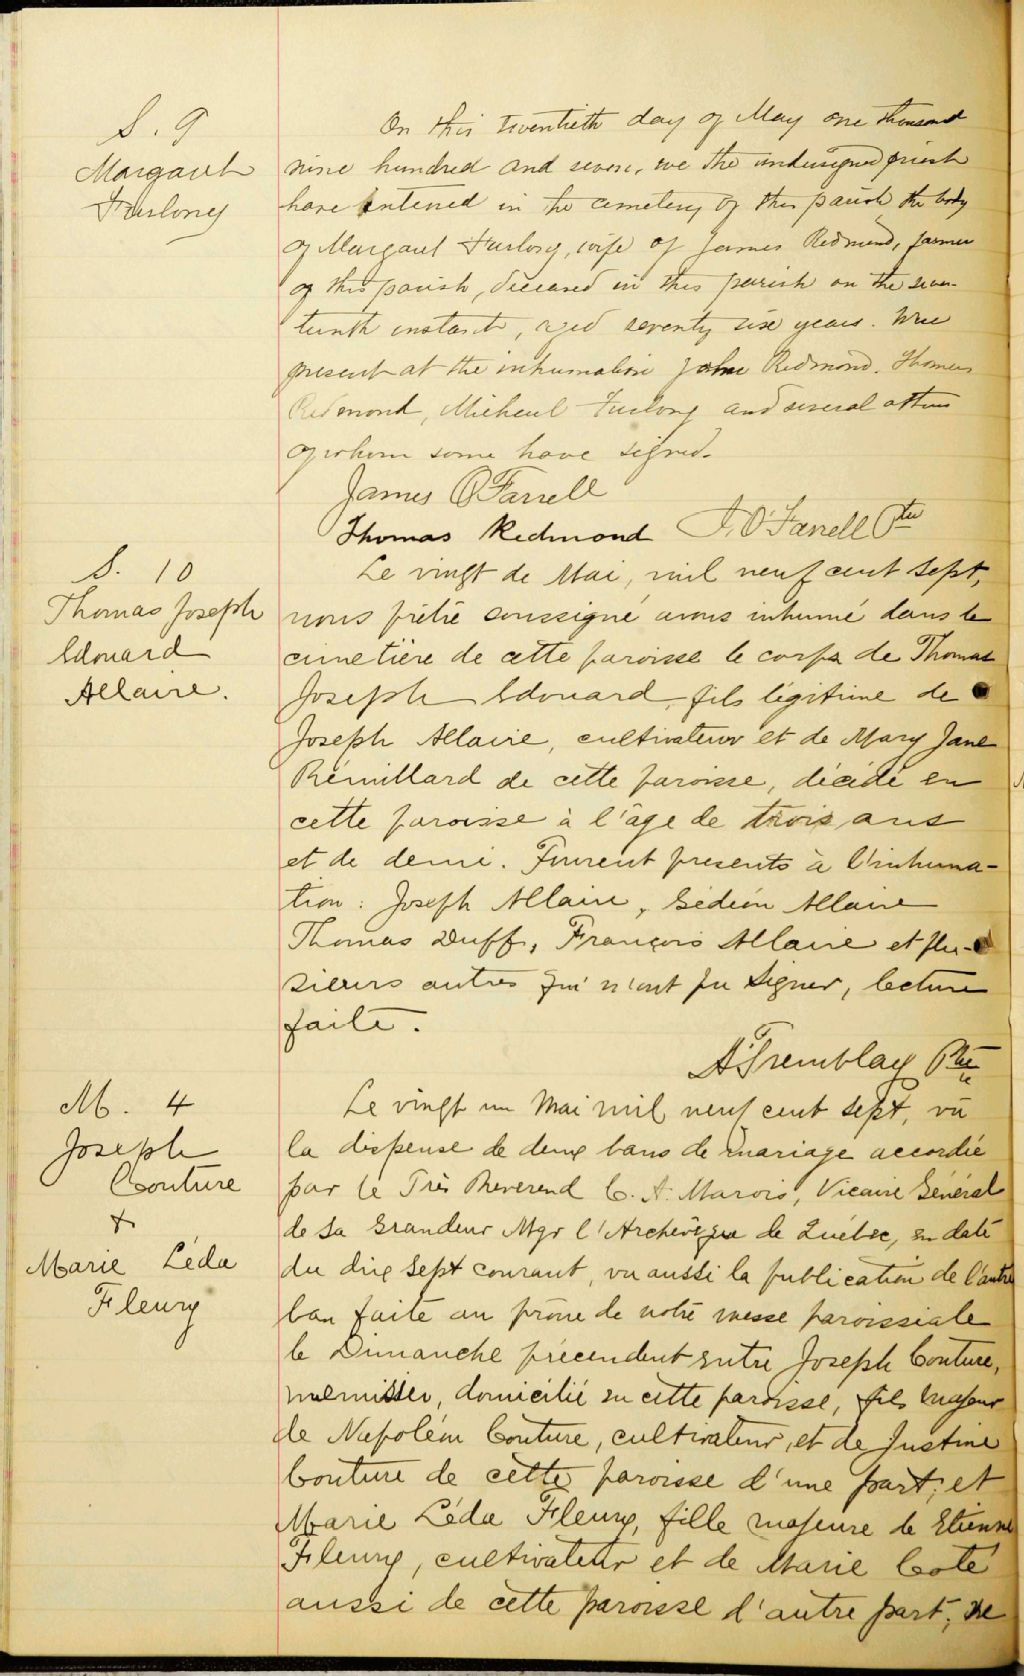 S. 9
Margaret
Furlong
On this twentieth day of May one thousand
nine hundred and seven, we the undersigned priest
have interred in the cemetery of this parish the body
of Margaret Furlong, wife of James Redmond, farmer
of this parish, deceased in this parish on the seven-
teenth instant, aged seventy six years. Were
present at the inhumation John Redmond, Thomas
Redmond, Micheal Furlong and several others
of whom some have signed.
James O'Farrell
Thomas Redmond J. O'Farrell Ptre
S. 10
Thomas Joseph
Edouard
Allaire.
Le vingt de Mai, mil neuf cent sept,
nous prêtre soussigné avons inhumé dans le
cimetière de cette paroisse le corps de Thomas
Joseph Edouard, fils légitime de
Joseph Allaire, cultivateur et de Mary Jane
Rémillard de cette paroisse, décédé en
cette paroisse à l'âge de trois ans
et de demi. Furent presents à l'inhuma-
tion: Joseph Allaire, Gédéon Allaire
Thomas Duff, François Allaire et plu-
sieurs autres qui n'ont pu signer, lecture
faite.
A Tremblay Ptre
M. 4
Joseph
Couture
+
Marie Léda
Fleury
Le vingt un Mai mil neuf cent sept, vû
la dispense de deux bans de mariage accordée
par le Très Reverend C. A. Marois, Vicaire Général
de Sa Grandeur Mgr l'Archevêque de Québec, en date
du dix sept courant, vu aussi la publication de l'autre
ban faite au prône de notre messe paroissiale
le Dimanche précendent entre Joseph Couture,
menuisier, domicilié en cette paroisse, fils majeur
de Napoléon Couture, cultivateur, et de Justine
Couture de cette paroisse d'une part; et
Marie Léda Fleury, fille majeure de Etienne
Fleury, cultivateur et de Marie Coté
aussi de cette paroisse d'autre part; ne